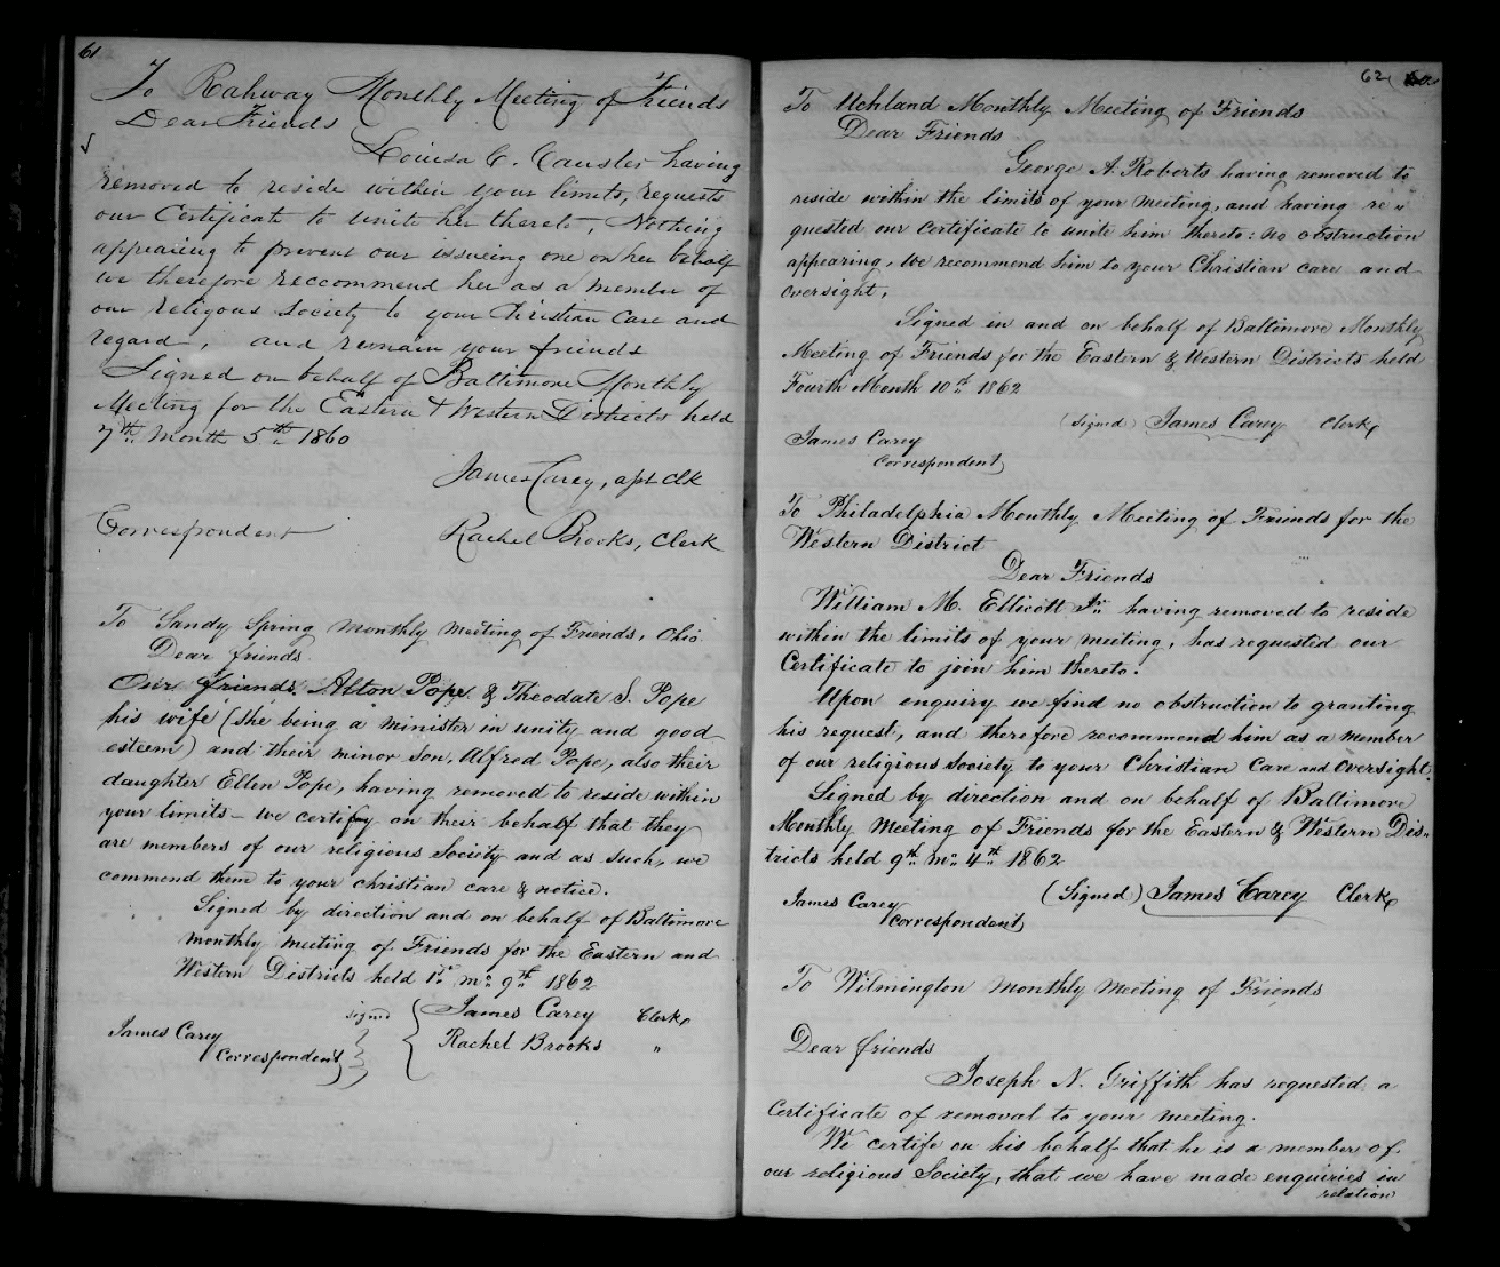 61
To Rahway Monthly Meeting of Friends
Dear Friends
Louisa C. having
removed to reside within your limits, requests
our Certificate to unite her thereto, Nothing
appearing to prevent our issueing one on her behalf
we therefore reccommend her as a member of
our religous Society to your Christian Care and
regard, and remain your friends
Signed on behalf of Baltimore Monthly
Meeting for the Eastern & Western Districts held
7th Month 5th 1860
James Carey, Clk
Correspondent Rachel Brooks, Clerk
To Sandy Spring Monthly Meeting of Friends, Ohio
Dear friends
Our friends Alton Pope & Theodate S. Pope
his wife (she being a minister in unity and good
esteem) and their minor son, Alfred Pope, also their
daughter Ellen Pope, having removed to reside within
your limits - we certify on their behalf that they
are members of our religious Society and as such, we
commend them to your christian care & notice.
Signed by direction and on behalf of Baltimore
monthly meeting of Friends for the Eastern and
Western Districts held 1st mo 9th 1862
signed James Carey Clerk
James Carey Rachel Brooks "
Correspondent
62
To Uchland Monthly Meeting of Friends
Dear Friends
George A. Roberts having removed to
reside within the limits of your meeting, and having re"
quested our certificate to unite him thereto: no obstruction
appearing, we recommend him to your Christian care and
oversight,
Signed in and on behalf of Baltimore Monthly
Meeting of Friends for the Eastern & Western Districts held
Fourth Month 10th 1862
(signed) James Carey Clerk
James Carey
Correspondent
To Philadelphia Monthly Meeting of Friends for the
Western District
Dear Friends
William M. Ellicott Jr. having removed to reside
within the limits of your meeting, has requested our
Certificate to join him thereto.
Upon enquiry we find no obstruction to granting
his request, and therefore recommend him as a member
of our religious Society to your Christian Care and oversight.
Signed by direction and on behalf of Baltimore
Monthly Meeting of Friends for the Eastern & Western Dis-
tricts held 9th mo 4th 1862
(Signed) James Carey Clerk
James Carey
Correspondent
To Wilmington Monthly Meeting of Friends
Dear friends
Joseph N. Griffith has requested a
Certificate of removal to your meeting.
We certify on his behalf that he is a member of
our religious Society, that we have made enquiries in
relation